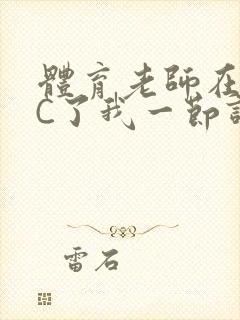 體育老師在
C了我一節
雷石